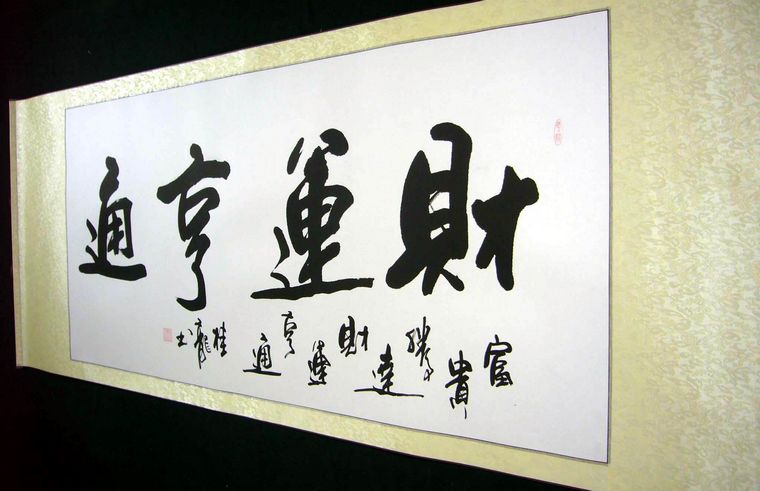 財運亨通
富貴騰達財運亨通桂龍书